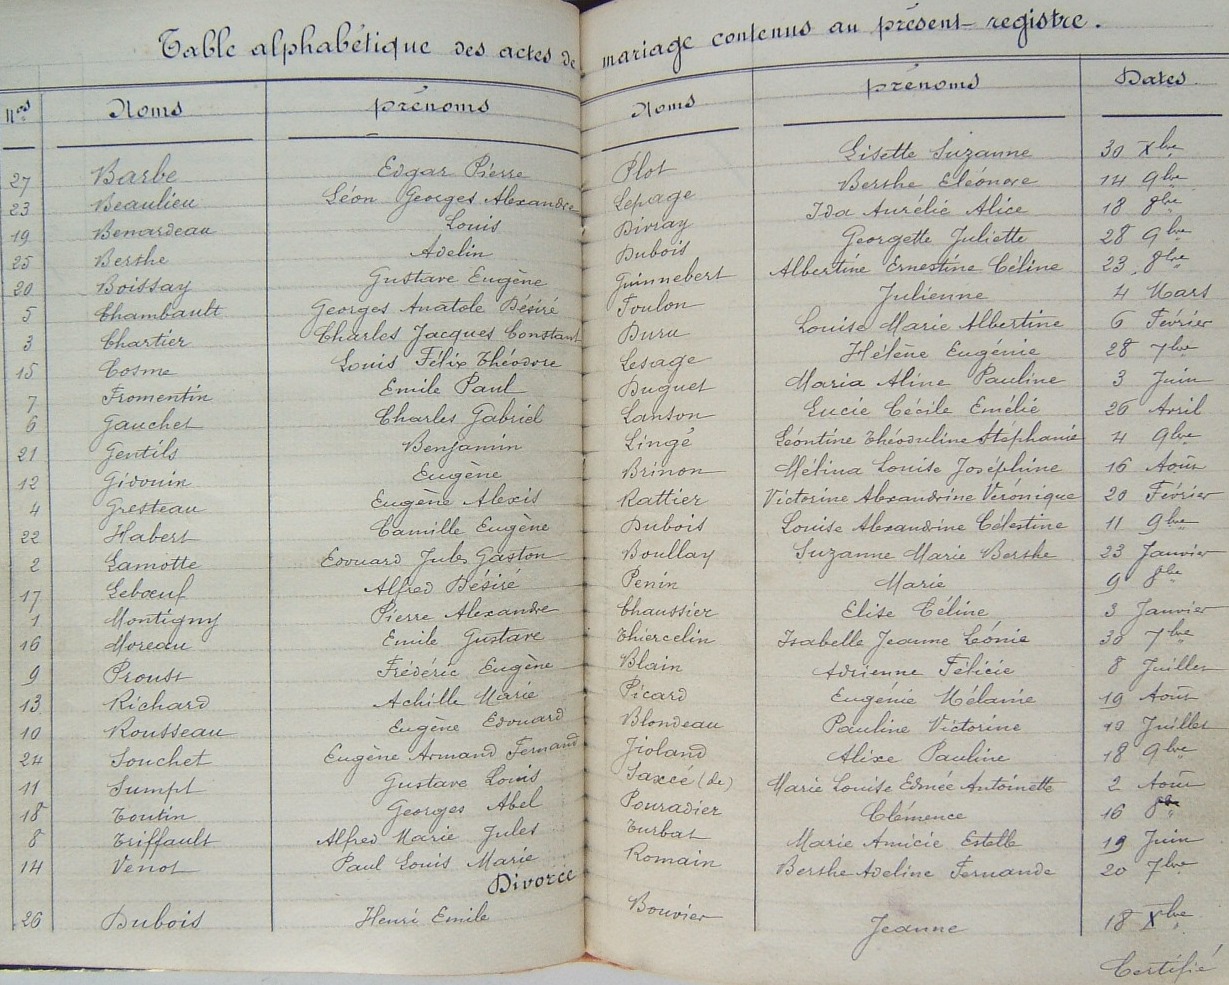 Table alphabétique des actes de mariage contenus au présent registre.
Nos Noms prénoms Noms prénoms Dates
27 Barbe Edgar Pierre Plot Lisette Suzanne 30 Xbre
23 Beaulieu Léon Georges Alexandre Lepage Berthe Eléonore 14 9bre
19 Benardeau Louis Divray Ida Aurélie Alice 18 8bre
25 Berthe Adelin Dubois Georgette Juliette 28 9bre
20 Boissay Gustave Eugène Guinnebert Albertine Ernestine Céline 23 8bre
5 Chambault Georges Anatole Désiré Foulon Julienne 4 Mars
3 Chartier Charles Jacques Constant Duru Louise Marie Albertine 6 Février
15 Cosme Louis Félix Théodore Lesage Hélène Eugénie 28 7bre
7 Fromentin Emile Paul Duguet Maria Aline Pauline 3 Juin
6 Gauchet Charles Gabriel Lanson Lucie Cécile Emélie 26 Avril
21 Gentils Benjamin Lingé Léontine Théoduline Stéphanie 4 9bre
12 Gidouin Eugène Brinon Mélina Louise Joséphine 16 Août
4 Gresteau Eugène Alexis Rattier Victorine Alexandrine Véronique 20 Février
22 Habert Camille Eugène Dubois Louise Alexandrine Célestine 11 9bre
2 Lamotte Edouard Jules Gaston Boullay Suzanne Marie Berthe 23 Janvier
17 Lebœuf Alfred Désiré Penin Marie 9 8bre
1 Montigny Pierre Alexandre Chaussier Elise Céline 3 Janvier
16 Moreau Emile Gustave Thiercelin Isabelle Jeanne Léonie 30 7bre
9 Proust Frédéric Eugène Blain Adrienne Félicie 8 Juillet
13 Richard Achille Marie Picard Eugénie Mélanie 19 Août
10 Rousseau Eugène Edouard Blondeau Pauline Victorine 19 Juillet
24 Souchet Eugène Armand Fernand Jioland Alixe Pauline 18 9bre
11 Sumpt Gustave Louis Saxcé (de) Marie Louise Edmée Antoinette 2 Août
18 Toutin Georges Abel Pouradier Clémence 16 8bre
8 Triffault Alfred Marie Jules Turbat Marie Amicie Estelle 19 Juin
14 Venot Paul Louis Marie Romain Berthe Adeline Fernande 20 7bre
Divorce
26 Dubois Henri Emile Bouvier Jeanne 18 Xbre
Certifié